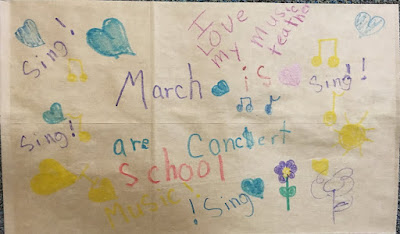 I
Love
my Music
teacher
Sing!
March is
Sing!
Sing!
are Concert
School
Music!
!Sing